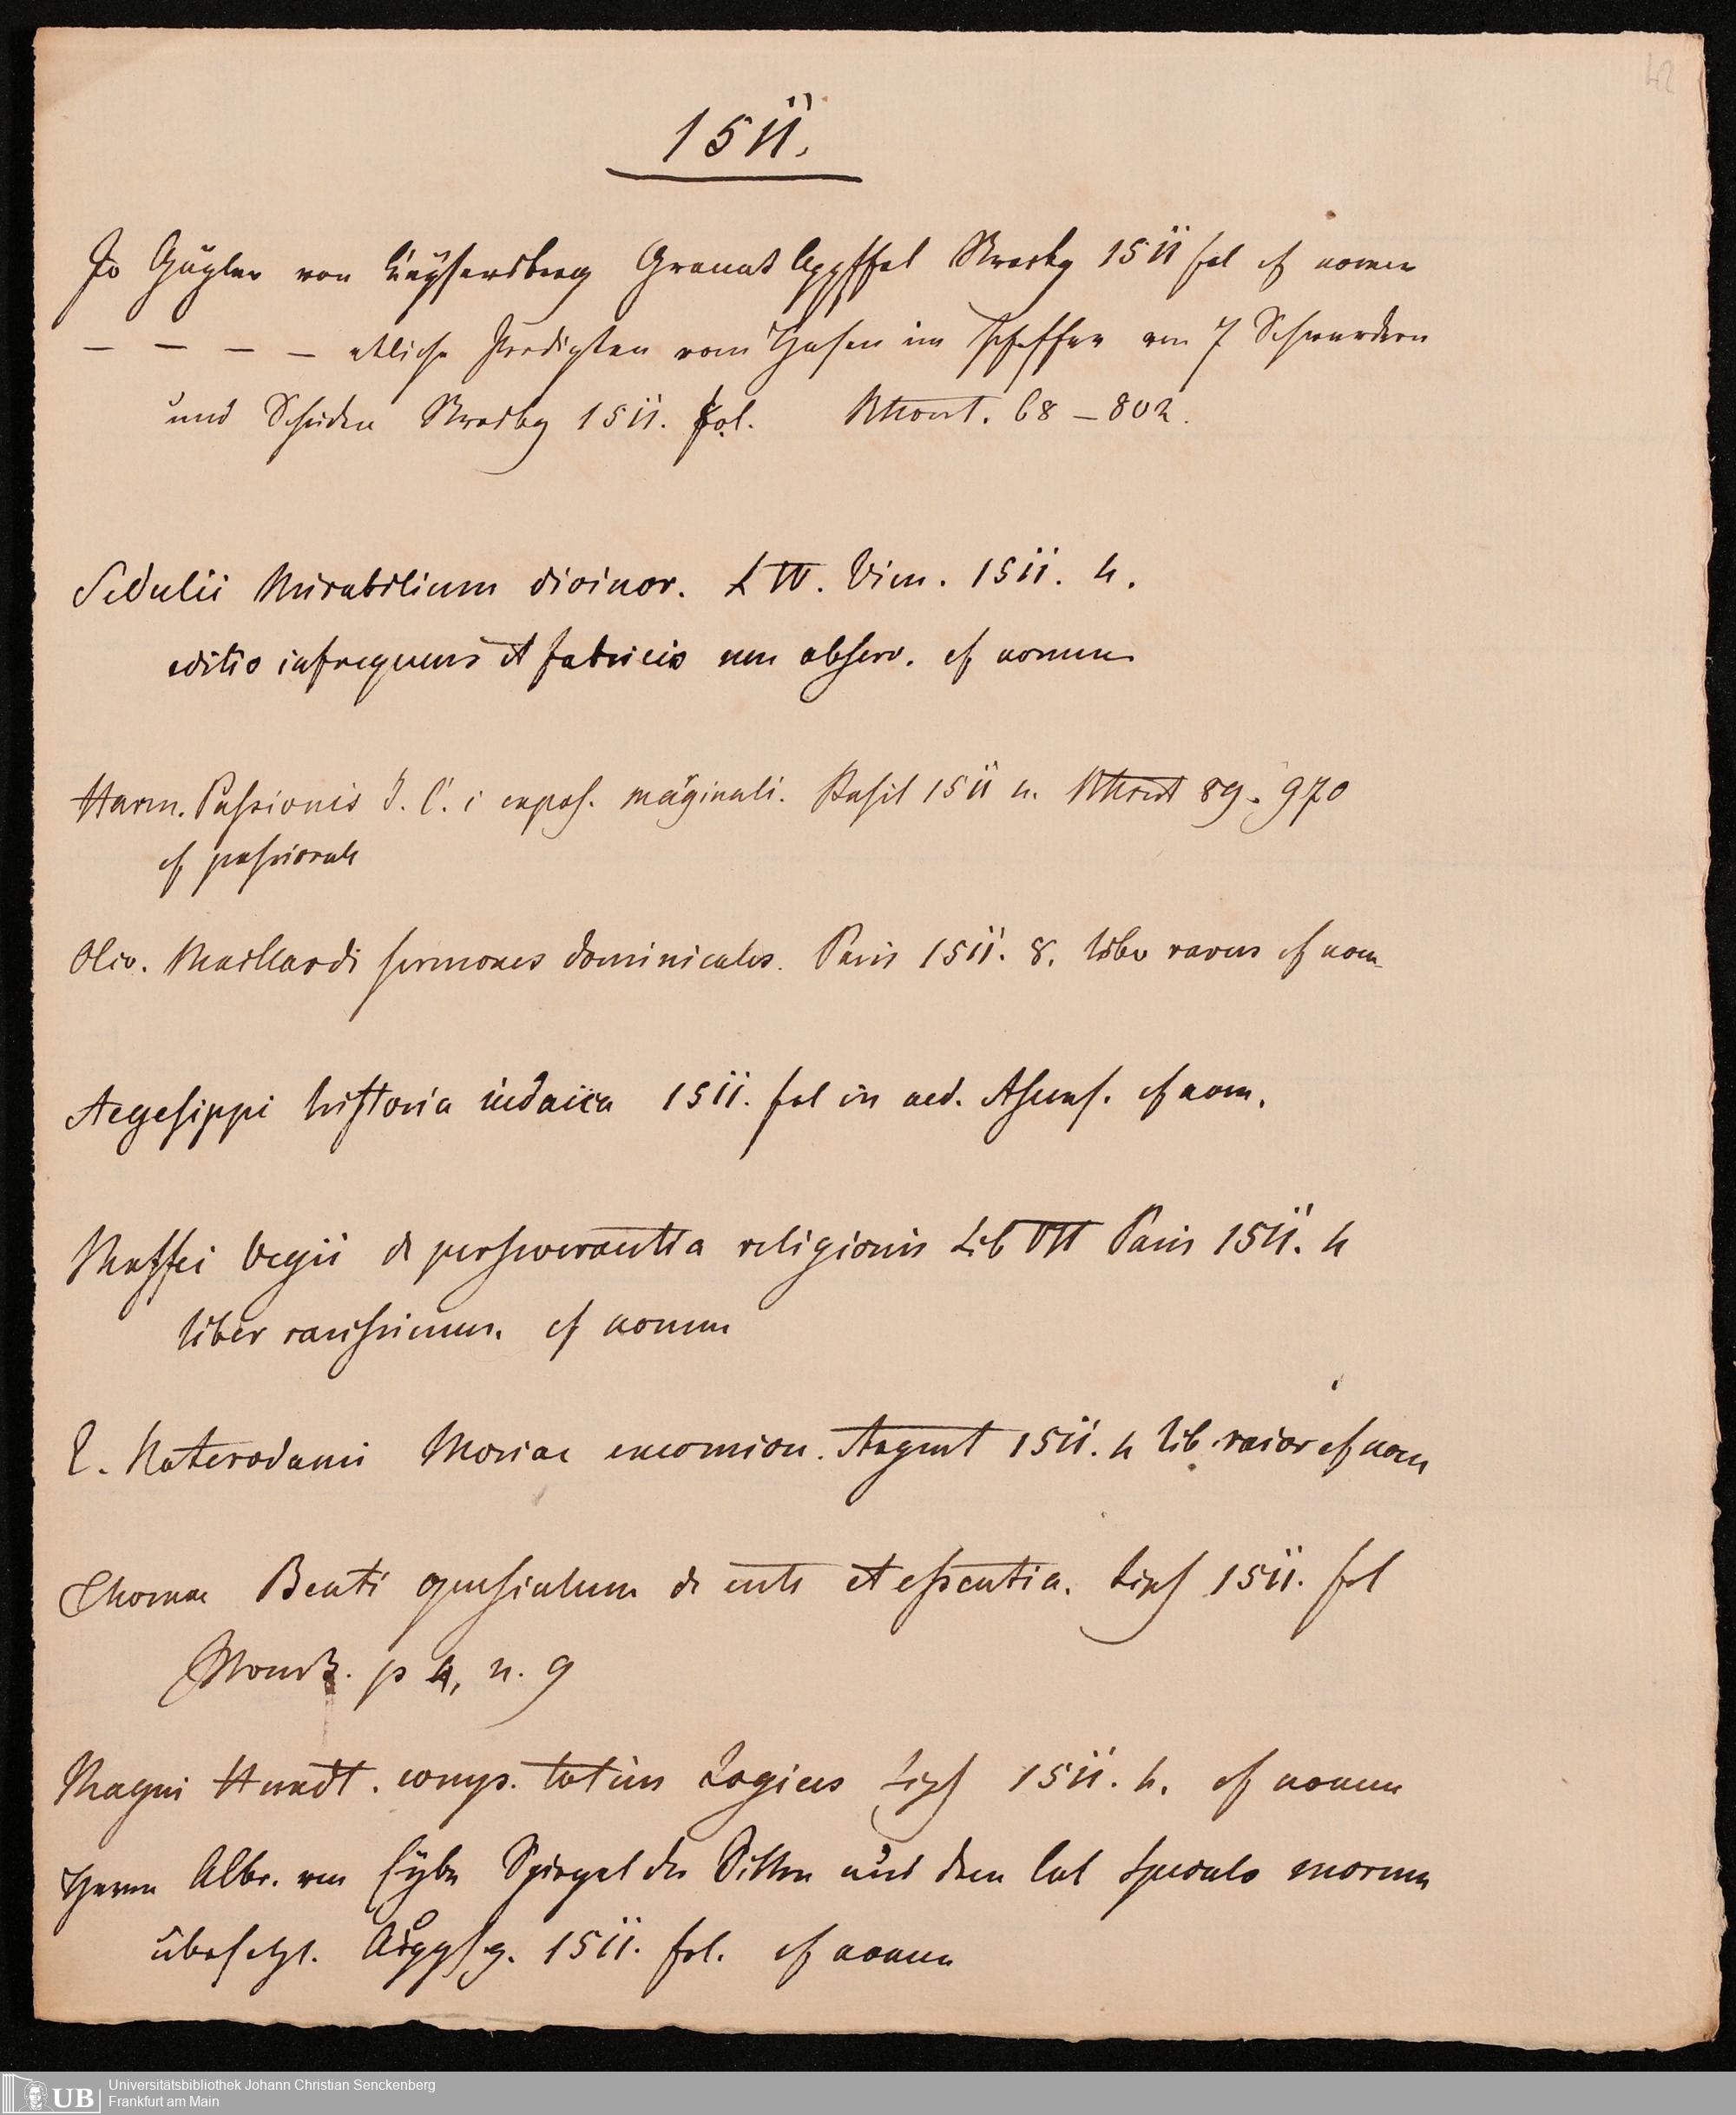 42
1511.
Jo Gäyler von Kaysersberg Granat Appffel Strasbg 1511 fol cf nomen
– – – – etliche Predigten vom Hasen im Pfeffer von 7 Schwerdern
und Scheiden Strasbg 1511. fol. 68 – 802.
Sedulii Mirabilium divinor. L IV. Vien. 1511. 4.
editio infrequens et fabricio non observ. cf nomen
Harm. Passionis J. C. c expos. marginali. Basil 1511 4. 89. 970
cf passionale
Oliv. Maillardi sermones dominicales. Paris 1511. 8. liber rarus cf nom
Aegesippi historia iudaica 1511. fol in aed. Ascens. cf nom.
Maffei Vegii de perseverantia religionis Lib VII Paris 1511. 4
liber rarissimus. cf nomen
E. Roterodami Moriae encomion. Argent 1511. 4 lib. rarior cf nom
Thomae Beati opusculum de ente et essentia. Lips 1511. fol
p 4, n. 9
Magni Hundt. comp. totius Logices Lips 1511. 4. cf nomen
Herrn Albr. von Eybe Spiegel der Sitten aus dem lat speculo morum
übersetzt. Augspg. 1511. fol. cf nomen
UB Universitätsbibliothek Johann Christian Senckenberg
Frankfurt am Main